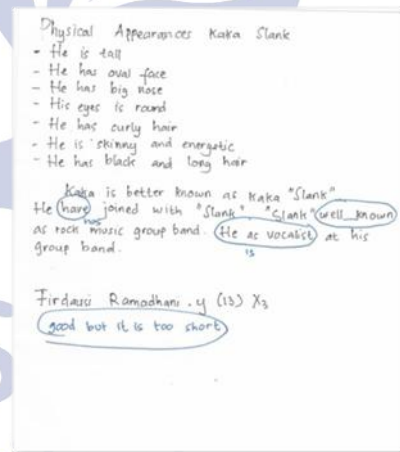 Physical Appearances Kaka Slank
- He is tall
- He has oval face
- He has big nose
- His eyes is round
- He has curly hair
- He is skinny and energetic
- He has black and long hair
Kaka is better known as Kaka "Slank"
He have joined with "Slank" "Slank" well known
has
as rock music group band. He as vocalist at his
is
group band.
Firdausi Ramadhani . y (13) X3
good but it is too short